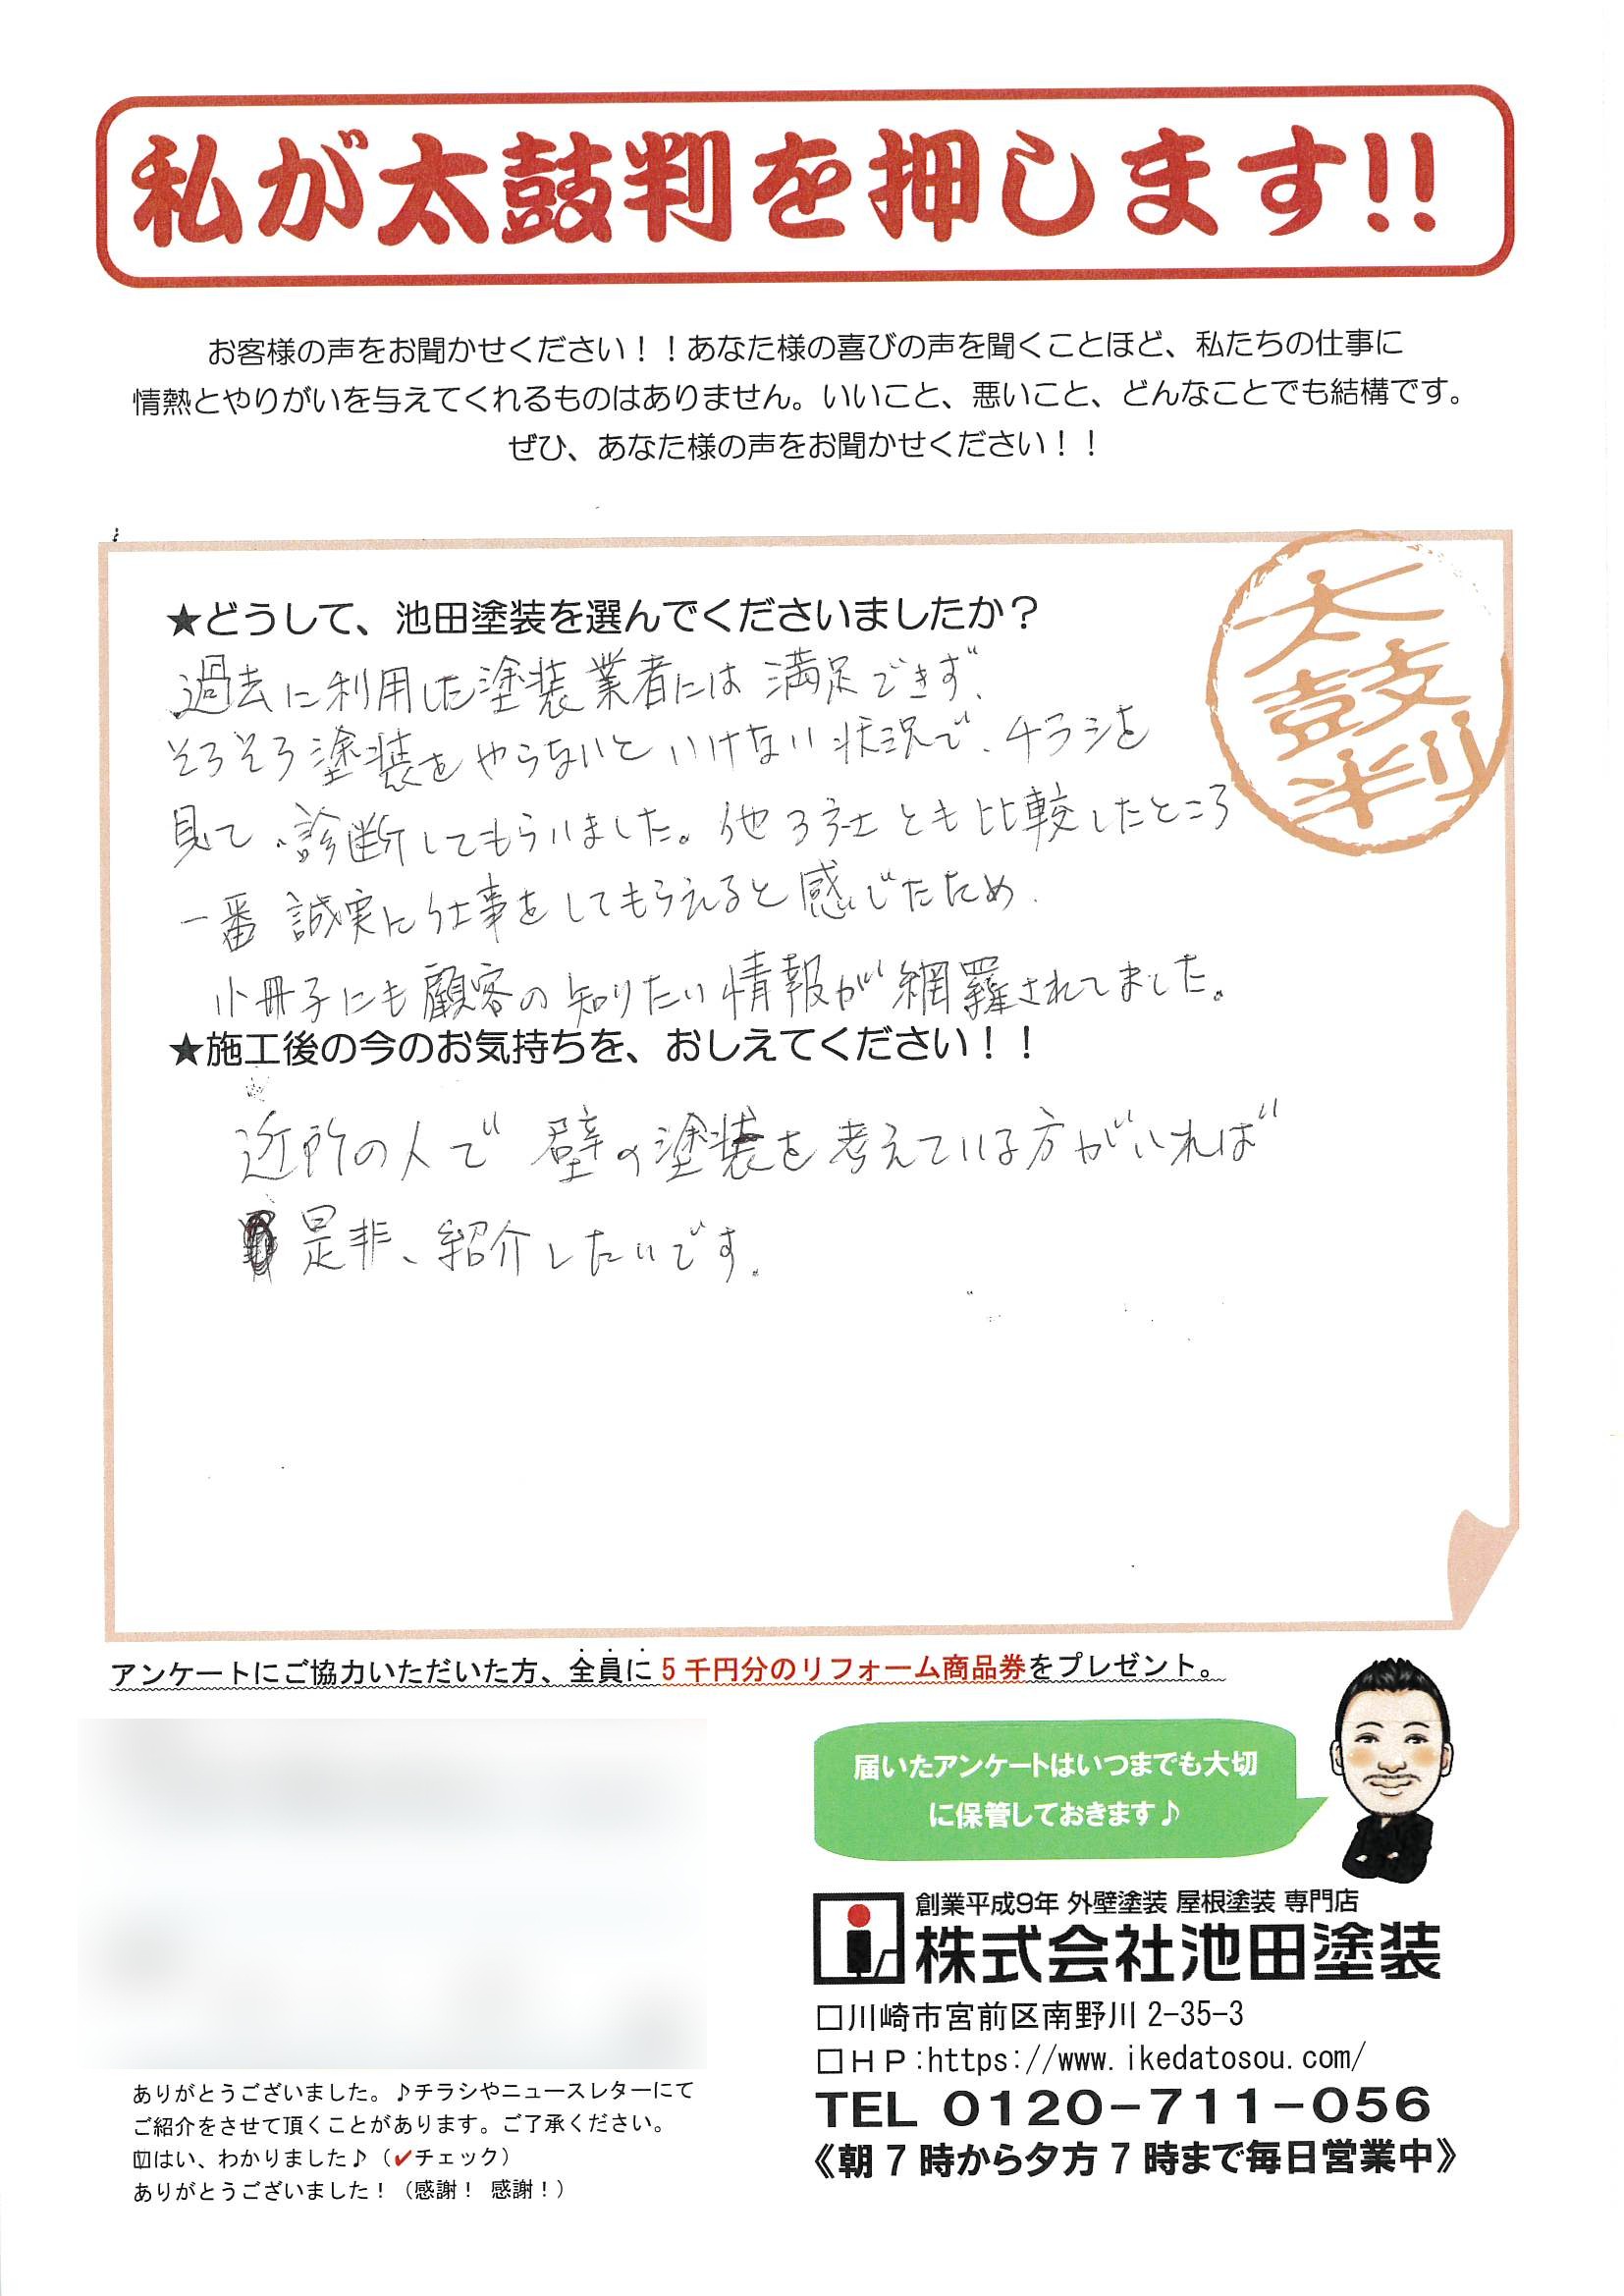 私が太鼓判を押します!!
お客様の声をお聞かせください！！あなた様の喜びの声を聞くことほど、私たちの仕事に
情熱とやりがいを与えてくれるものはありません。いいこと、悪いこと、どんなことでも結構です。
ぜひ、あなた様の声をお聞かせください！！
太鼓判
★どうして、池田塗装を選んでくださいましたか？
過去に利用した塗装業者には満足できず、
そろそろ塗装をやらないといけない状況で、チラシを
見て、診断してもらいました。他3社とも比較したところ
一番誠実に仕事をしてもらえると感じたため。
小冊子にも顧客の知りたい情報が網羅されてました。
★施工後の今のお気持ちを、おしえてください！！
近所の人で壁の塗装を考えている方がいれば
是非、紹介したいです。
アンケートにご協力いただいた方、全員に5千円分のリフォーム商品券をプレゼント。
届いたアンケートはいつまでも大切
に保管しておきます♪
創業平成9年 外壁塗装 屋根塗装 専門店
株式会社池田塗装
□川崎市宮前区南野川2-35-3
□ＨＰ:https://www.ikedatosou.com/
TEL 0120-711-056
《朝7時から夕方7時まで毎日営業中》
ありがとうございました。♪チラシやニュースレターにて
ご紹介をさせて頂くことがあります。ご了承ください。
☑はい、わかりました♪（✔チェック）
ありがとうございました！（感謝！ 感謝！）